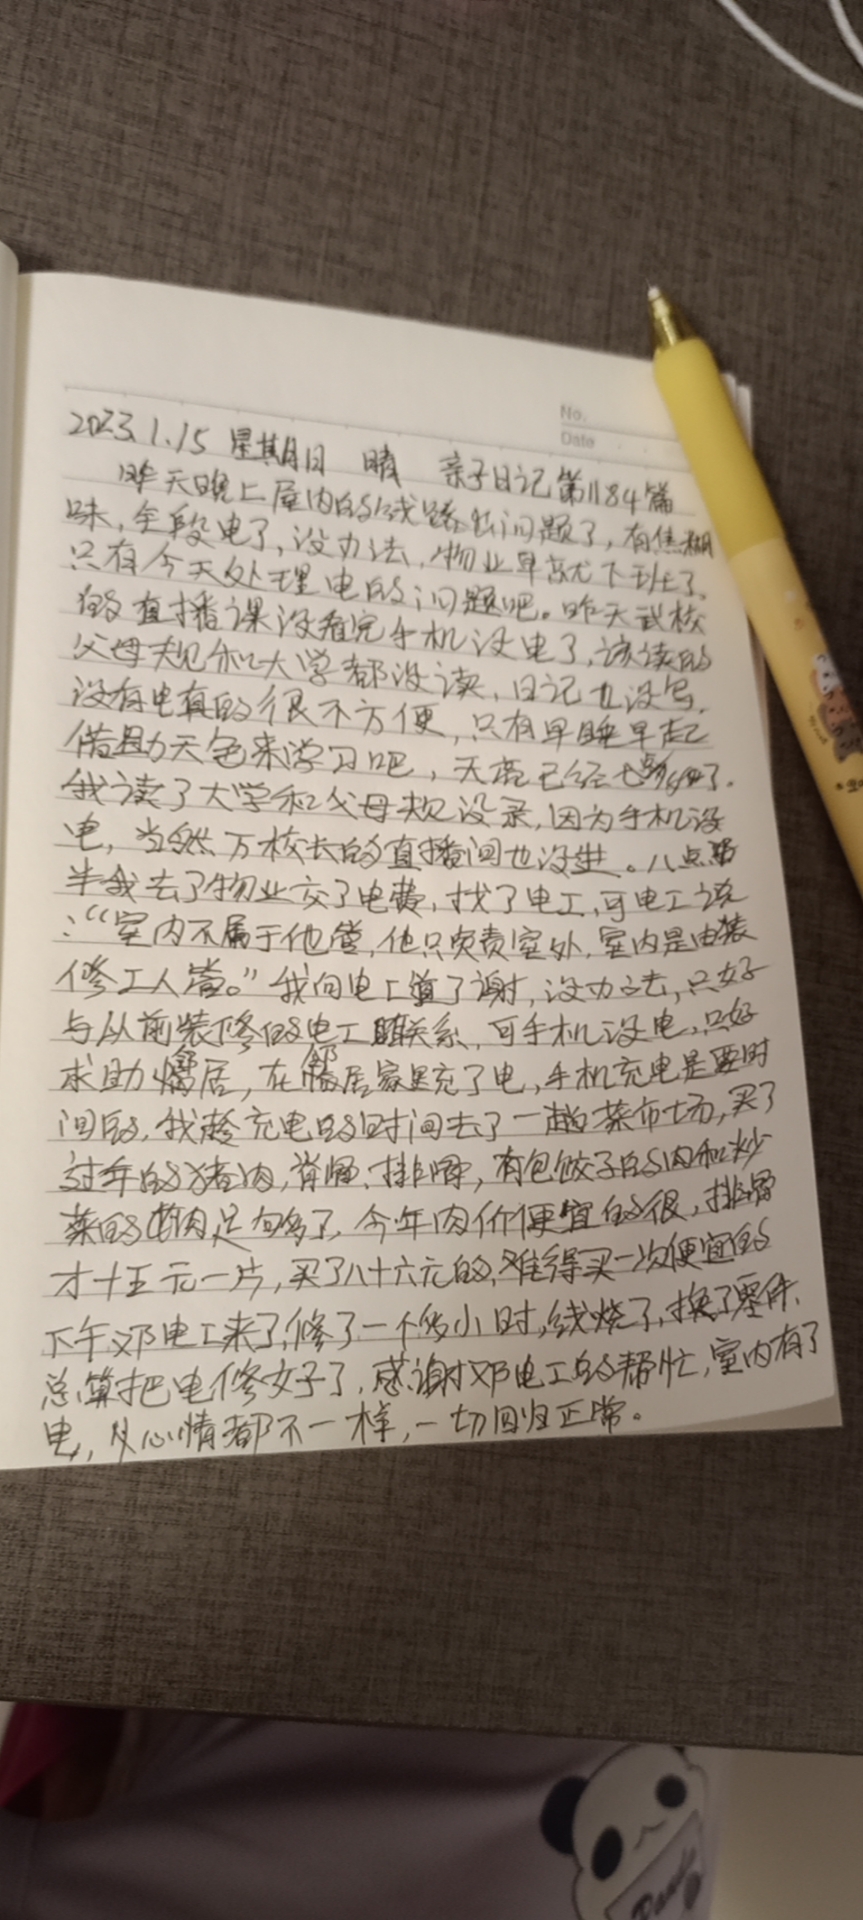 No.
Date
2023.1.15 星期日 晴 亲子日记第1184篇
昨天晚上屋内的线路出问题了,有焦糊
味,全段电了,没办法,物业早就下班了,
只有今天处理电的问题吧。昨天武校
的直播课没看完手机没电了,该读的
父母规和大学都没读,日记也没写,
没有电真的很不方便,只有早睡早起
借助天色来学习吧,天亮已经七点了.
我读了大学和父母规没录,因为手机没
电,当然万校长的直播间也没进。八点
半我去了物业交了电费,找了电工,可电工说
:“室内不属于他管,他只负责室外,室内是由装
修工人管。”我向电工道了谢,没办法,只好
与从前装修的电工联系,可手机没电,只好
求助邻居,在邻居家里充了电,手机充电是要时
间的,我趁充电的时间去了一趟菜市场,买了
过年的猪肉,排骨,有包饺子的肉和炒
菜的肉足够多了,今年肉价便宜的很,排骨
才十五元一片,买了八十六元的,难得买一次便宜的
下午邓电工来了,修了一个多小时,线烧了,换了零件,
总算把电修好了,感谢邓电工的帮忙,室内有了
电,心情都不一样,一切回归正常。
Panda